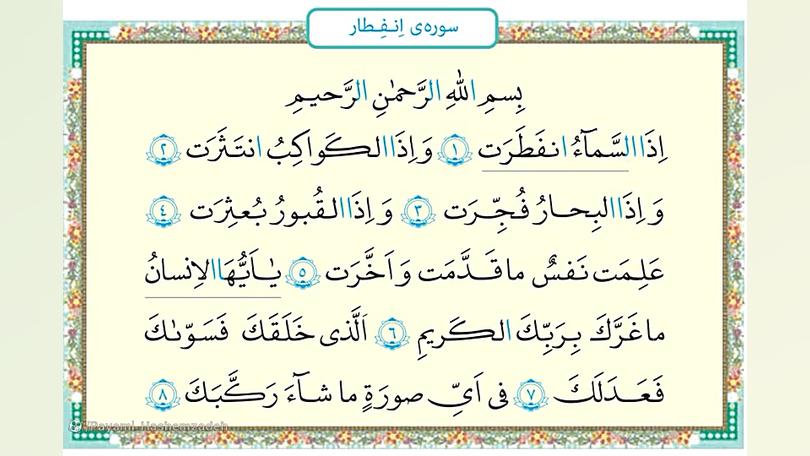 سوره‌ی اِنفِطار
بِسمِ اللهِ الرَّحمٰنِ الرَّحیمِ
اِذَا السَّمآءُ انفَطَرَت ﴿۱﴾ وَ اِذَا الکَواکِبُ انتَثَرَت ﴿۲﴾
وَ اِذَا البِحارُ فُجِّرَت ﴿۳﴾ وَ اِذَا القُبورُ بُعثِرَت ﴿۴﴾
عَلِمَت نَفسٌ ما قَدَّمَت وَ اَخَّرَت ﴿۵﴾ یٰاَیُّهَا الاِنسانُ
ما غَرَّكَ بِرَبِّكَ الکَریمِ ﴿۶﴾ اَلَّذی خَلَقَكَ فَسَوّىٰكَ
فَعَدَلَكَ ﴿۷﴾ فی اَیِّ صورَةٍ ما شآءَ رَکَّبَكَ ﴿۸﴾
Payami_Hashemzadeh